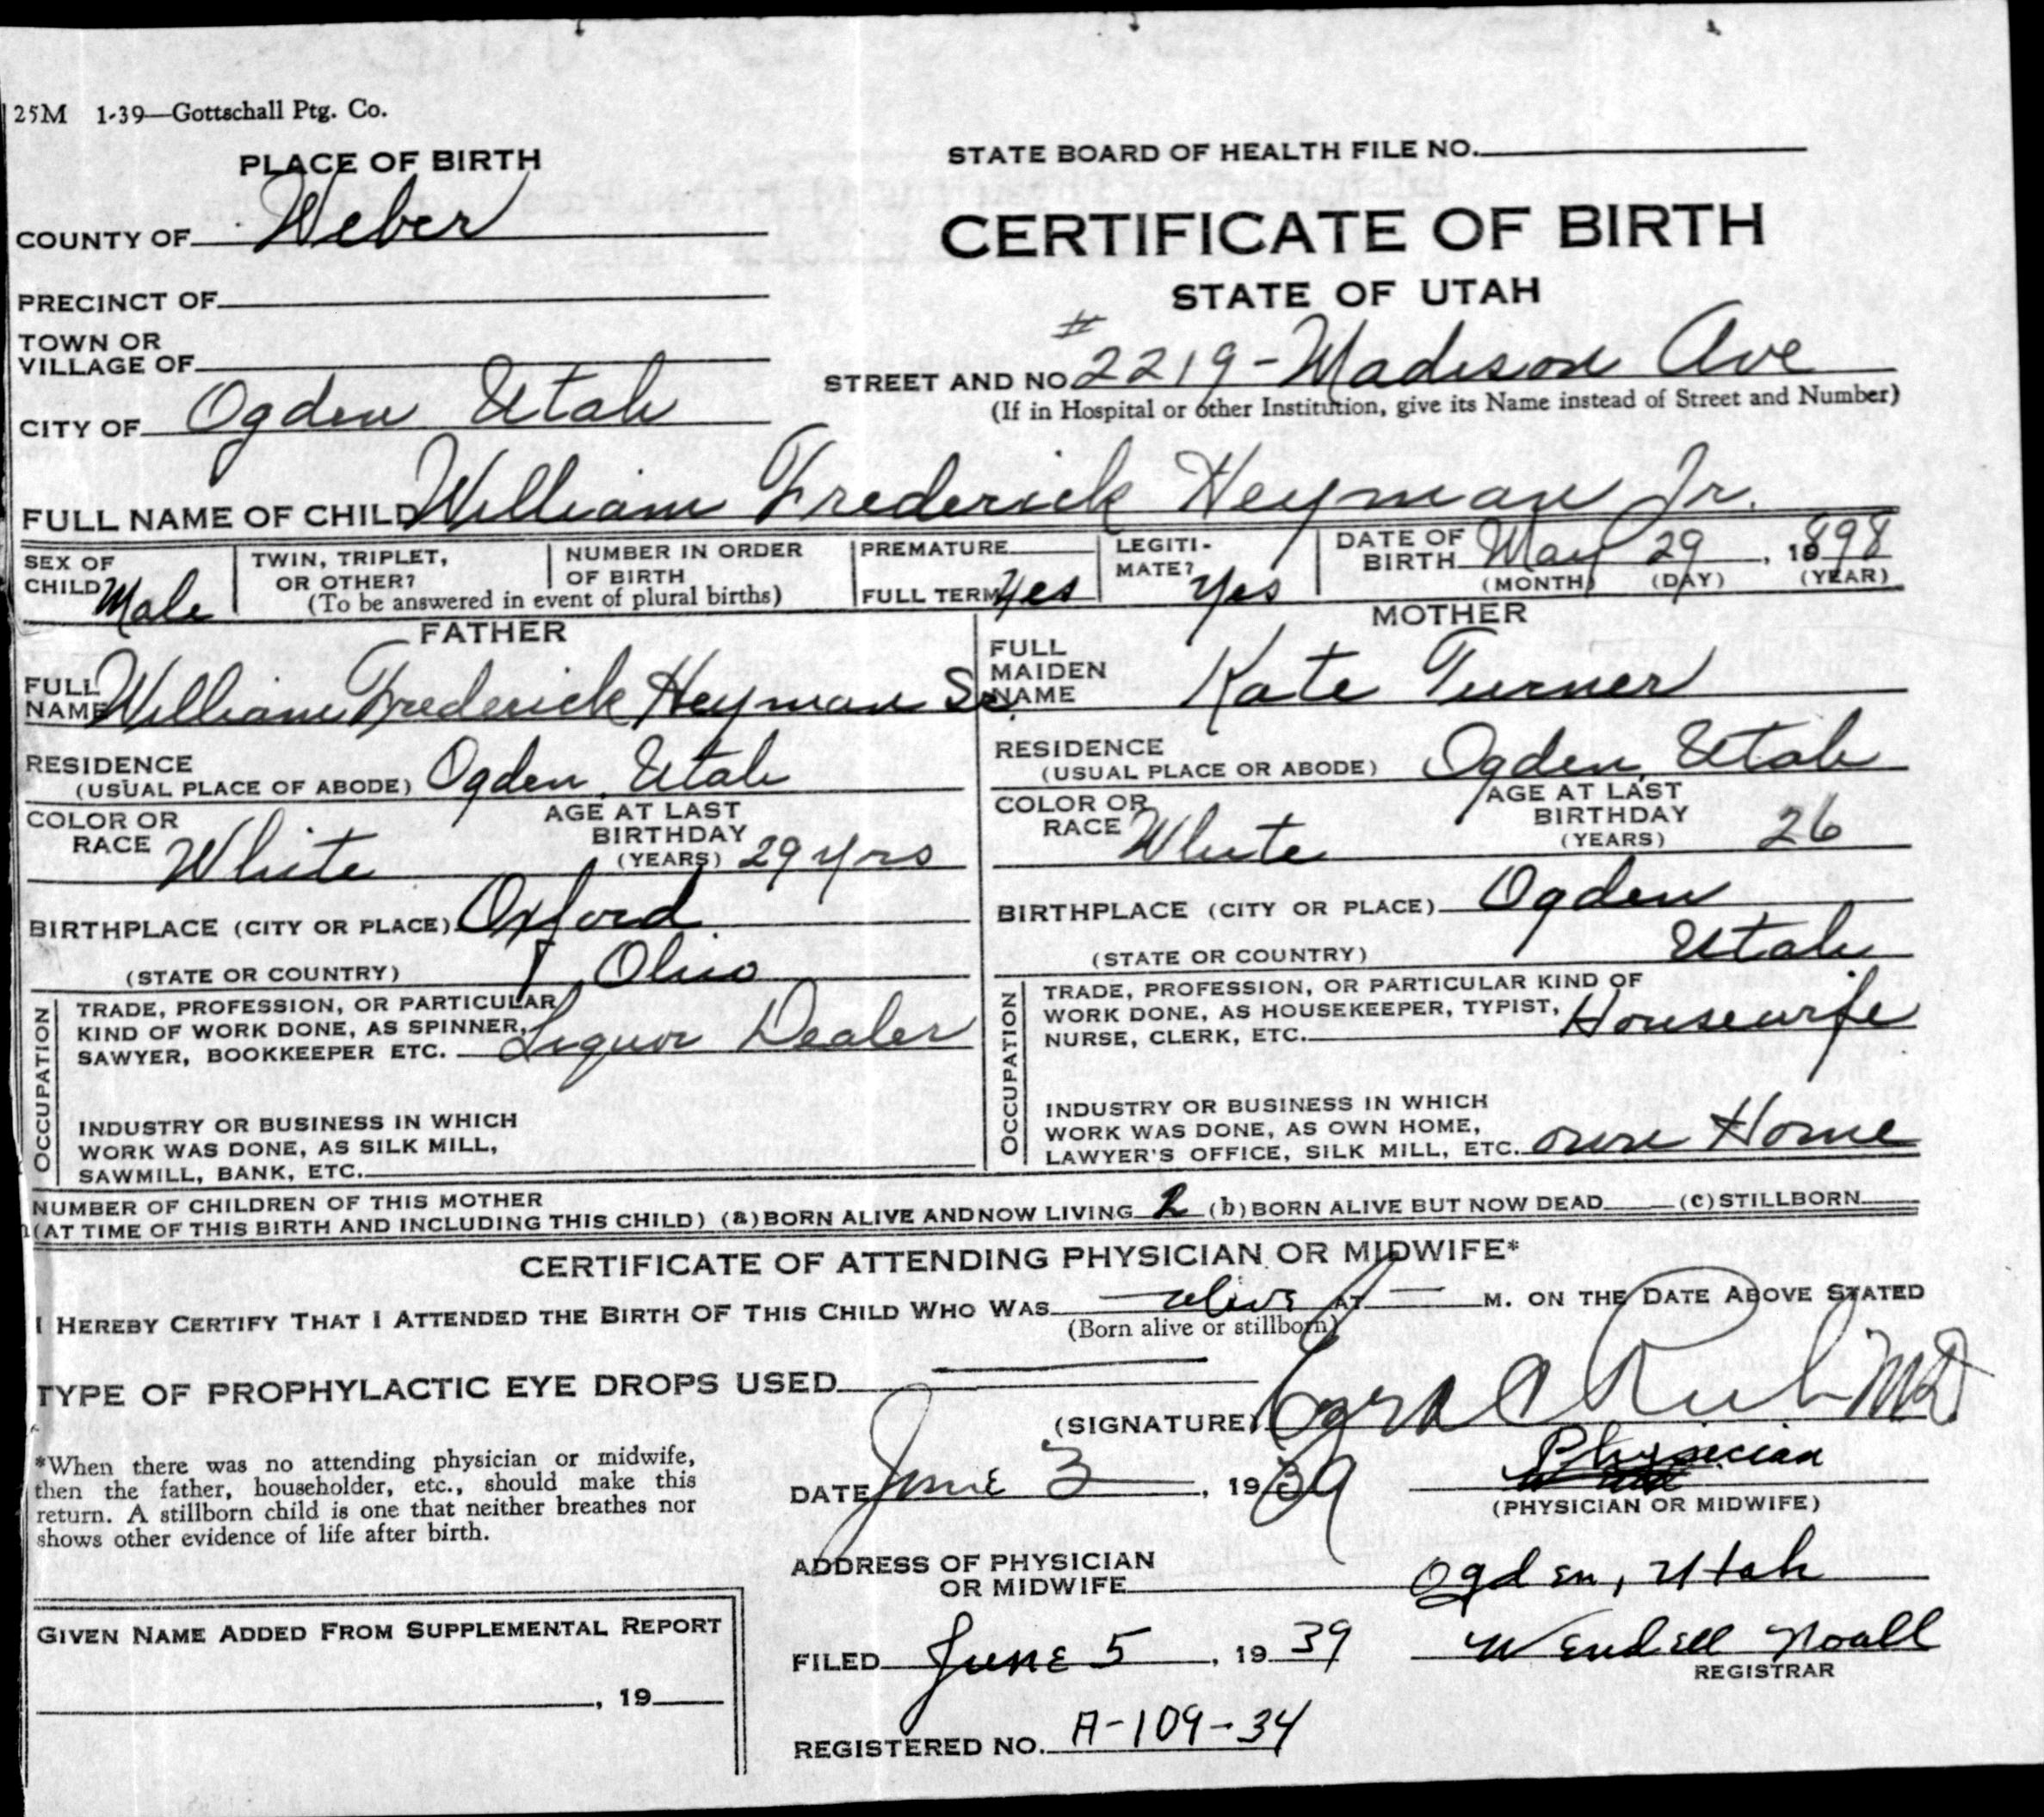 25M 1-39—Gottschall Ptg. Co.
PLACE OF BIRTH
STATE BOARD OF HEALTH FILE NO.
COUNTY OF Weber
CERTIFICATE OF BIRTH
PRECINCT OF
STATE OF UTAH
TOWN OR
VILLAGE OF
STREET AND NO. #2219-Madison Ave
(If in Hospital or other Institution, give its Name instead of Street and Number)
CITY OF Ogden Utah
FULL NAME OF CHILD William Frederick Heyman Jr.
SEX OF
CHILD Male
TWIN, TRIPLET,
OR OTHER?
NUMBER IN ORDER
OF BIRTH
(To be answered in event of plural births)
PREMATURE
FULL TERM Yes
LEGITI-
MATE? Yes
DATE OF
BIRTH May 29, 1898
(MONTH) (DAY) (YEAR)
FATHER
FULL
NAME William Frederick Heyman Sr.
RESIDENCE
(USUAL PLACE OF ABODE) Ogden, Utah
COLOR OR
RACE White
AGE AT LAST
BIRTHDAY
(YEARS) 29 yrs
BIRTHPLACE (CITY OR PLACE) Oxford
(STATE OR COUNTRY) Ohio
OCCUPATION
TRADE, PROFESSION, OR PARTICULAR
KIND OF WORK DONE, AS SPINNER,
SAWYER, BOOKKEEPER ETC. Liquor Dealer
INDUSTRY OR BUSINESS IN WHICH
WORK WAS DONE, AS SILK MILL,
SAWMILL, BANK, ETC.
MOTHER
FULL
MAIDEN
NAME Kate Turner
RESIDENCE
(USUAL PLACE OR ABODE) Ogden, Utah
COLOR OR
RACE White
AGE AT LAST
BIRTHDAY
(YEARS) 26
BIRTHPLACE (CITY OR PLACE) Ogden
(STATE OR COUNTRY) Utah
OCCUPATION
TRADE, PROFESSION, OR PARTICULAR KIND OF
WORK DONE, AS HOUSEKEEPER, TYPIST,
NURSE, CLERK, ETC. Housewife
INDUSTRY OR BUSINESS IN WHICH
WORK WAS DONE, AS OWN HOME,
LAWYER'S OFFICE, SILK MILL, ETC. own Home
NUMBER OF CHILDREN OF THIS MOTHER
(AT TIME OF THIS BIRTH AND INCLUDING THIS CHILD) (a) BORN ALIVE AND NOW LIVING 2 (b) BORN ALIVE BUT NOW DEAD (c) STILLBORN
CERTIFICATE OF ATTENDING PHYSICIAN OR MIDWIFE*
I HEREBY CERTIFY THAT I ATTENDED THE BIRTH OF THIS CHILD WHO WAS alive AT — M. ON THE DATE ABOVE STATED
(Born alive or stillborn)
TYPE OF PROPHYLACTIC EYE DROPS USED
(SIGNATURE) Ezra C Rich MD.
*When there was no attending physician or midwife,
then the father, householder, etc., should make this
return. A stillborn child is one that neither breathes nor
shows other evidence of life after birth.
DATE June 3, 1939
Physician
(PHYSICIAN OR MIDWIFE)
ADDRESS OF PHYSICIAN
OR MIDWIFE Ogden, Utah
GIVEN NAME ADDED FROM SUPPLEMENTAL REPORT
, 19
FILED June 5, 1939
Wendell Noall
REGISTRAR
REGISTERED NO. A-109-34